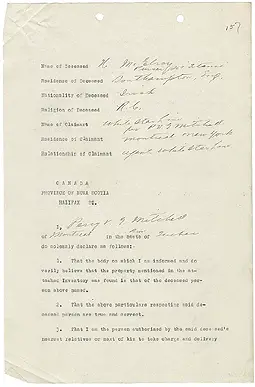 157
Name of Deceased H. McElroy
Residence of Deceased Southampton, Eng.
Nationality of Deceased Irish
Religion of Deceased R.C.
Name of Claimant White Star Line
per P.V.G. Mitchell
Residence of Claimant Montreal New York
Relationship of Claimant agent White Star Line
CANADA
PROVINCE OF NOVA SCOTIA
HALIFAX SS.
I, Percy V. G. Mitchell
of Montreal in the of Quebec
do solemnly declare as follows:-
1. That the body on which I am informed and do
verily believe that the property mentioned in the at-
tached Inventory was found is that of the deceased per-
son above named.
2. That the above particulars respecting said de-
ceased person are true and correct.
3. That I am the person authorized by the said deceased's
nearest relatives or next of kin to take charge and delivery